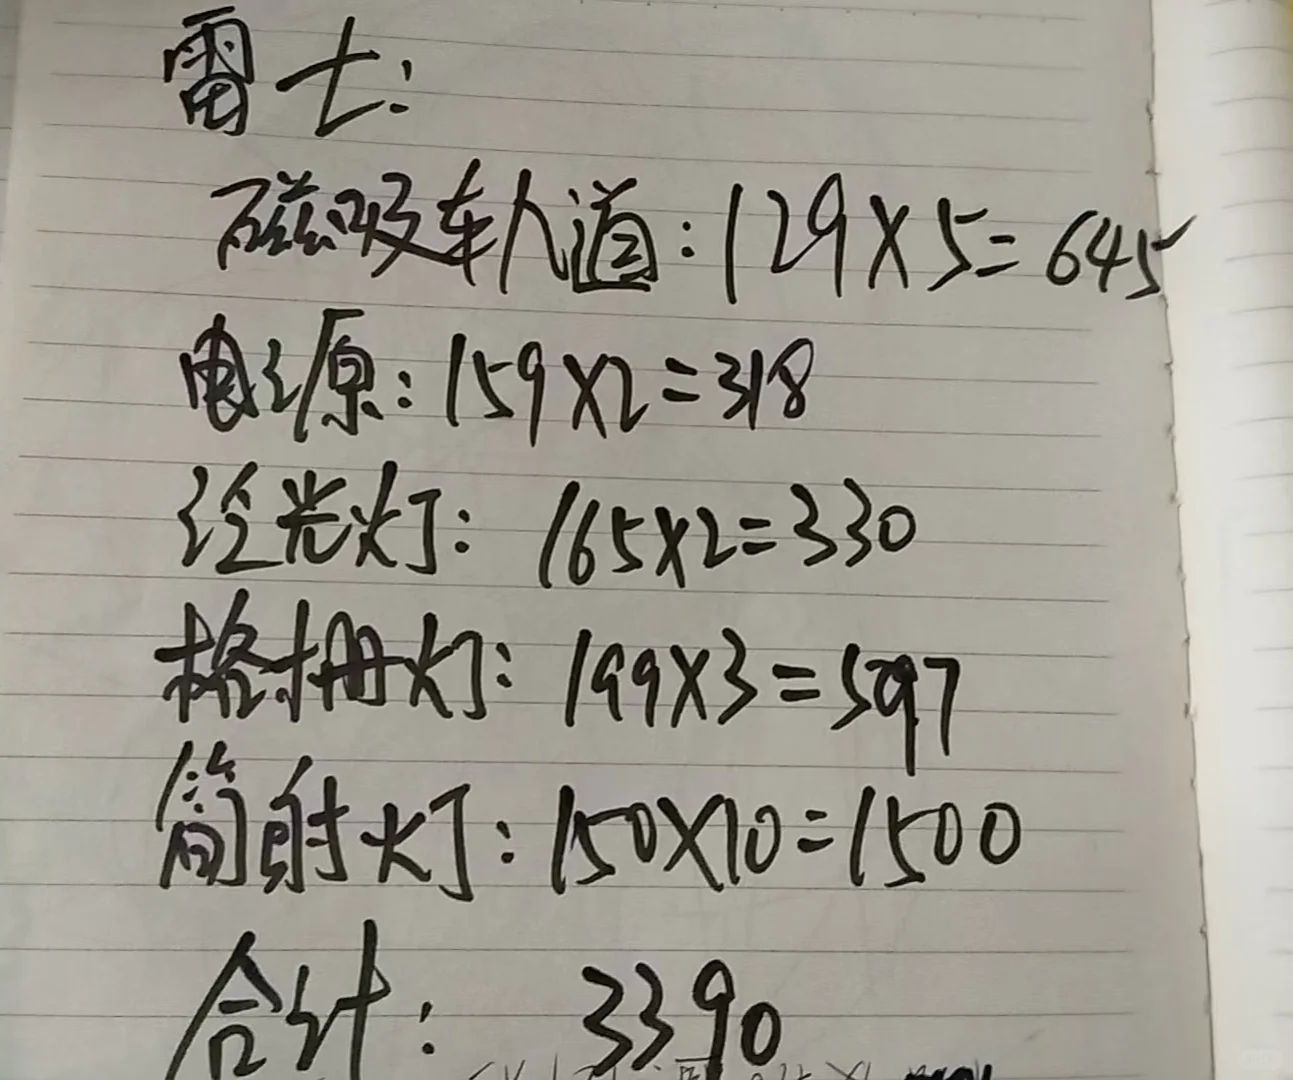 雷士:
磁吸轨道:129×5=645
电源:159×2=318
泛光灯:165×2=330
格栅灯:199×3=597
筒射灯:150×10=1500
合计:3390